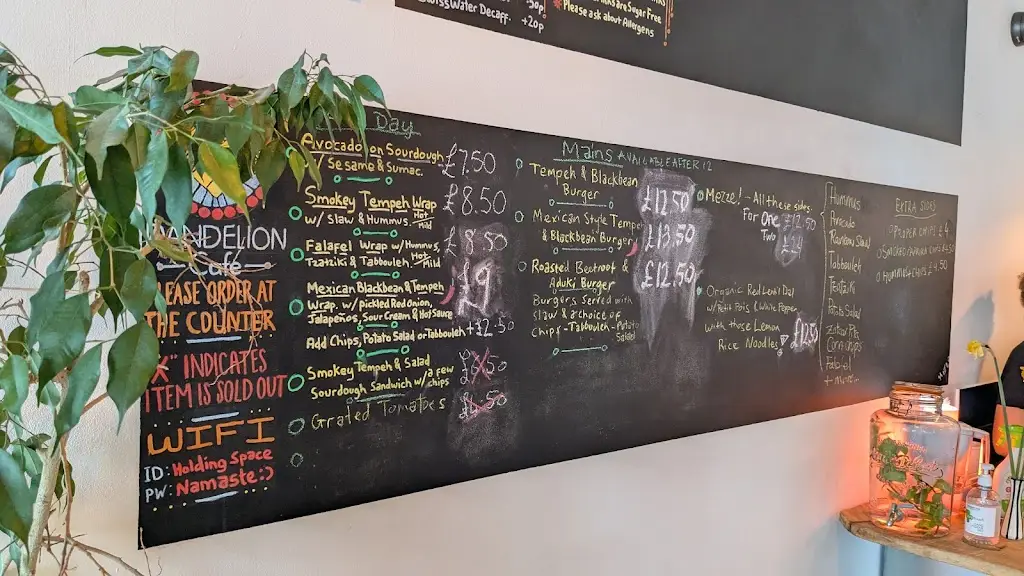 Swiss Water Decaff. +20p
are Sugar Free
Please ask about Allergens
Day
Avocado on Sourdough £7.50
w/ Sesame & Sumac.
Smokey Tempeh Wrap £8.50
w/ Slaw & Hummus. Hot Mild
Falafel Wrap w/ Hummus, £8.50
Tzatziki & Tabbouleh. Hot Mild
Mexican Blackbean & Tempeh £9
Wrap w/ pickled Red Onion,
Jalapeños, Sour Cream & Hot Sauce
Add Chips, Potato Salad or Tabbouleh +£2.50
Smokey Tempeh & Salad
Sourdough Sandwich w/ a few chips
Grated Tomatoes
DANDELION
Café
PLEASE ORDER AT
THE COUNTER
"X" INDICATES
ITEM IS SOLD OUT
WIFI
ID: Holding Space
PW: Namaste:)
Mains AVAILABLE AFTER 12
Tempeh & Blackbean £12.50
Burger
Mexican Style Tempeh £13.50
& Blackbean Burger
Roasted Beetroot & £12.50
Aduki Burger
Burgers Served with
slaw & a choice of
Chips - Tabbouleh - Potato Salad
Mezze! - All these sides,
For One £12.50
Two £24
Organic Red Lentil Dal
w/ Petit Pois & White Pepper
with those Lemon
Rice Noodles £12.50
Hummus
Avocado
Rainbow Slaw
Tabbouleh
Tzatziki
Potato Salad
Falafel
+ more...
EXTRA SIDES
PROPER CHIPS £4
SMOKED PAPRIKA CHIPS £4.50
HUMMUS & CHIPS £4.50